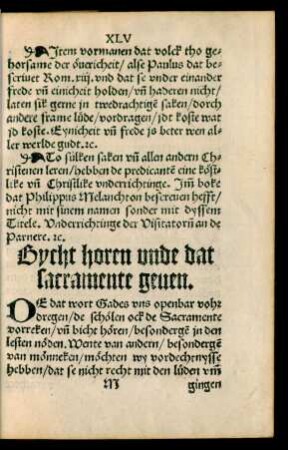 XLV
Item vormanen dat volck tho ge-
horsame der öuericheit / alse Paulus dat be-
scriuet Rom. xiij. vnd dat se vnder einander
frede vn̄ einicheit holden / vn̄ haderen nicht /
laten sik gerne in twedrachtigē saken / dorch
andere frame lüde / vordragen / jdt koste wat
jd koste. Eynicheit vn̄ frede js beter wen al-
ler werlde gudt. ꝛc.
To sülken saken vn̄ allen andern Chri-
stenen leren / hebben de predicantē eine köst-
like vn̄ Christlike vnderrichtinge. Im̄ boke
dat Philippus Melanchton bescreuen hefft /
nicht mit sinem namen sonder mit dyssem
Titele. Vnderrichtinge der Visitatorn̄ an de
Parnere. ꝛc.
Bycht horen vnde dat
sacramente geuen.
DE dat wort Gades vns openbar vohr
dregen / de schölen ock de Sacramente
vorreken / vn̄ bicht hören / besondergē jn den
lesten nöden. Wente van andern / besondergē
van mönneken / möchten wy vordechtnysse
hebben / dat se nicht recht mit den lüden vm̄
M gingen